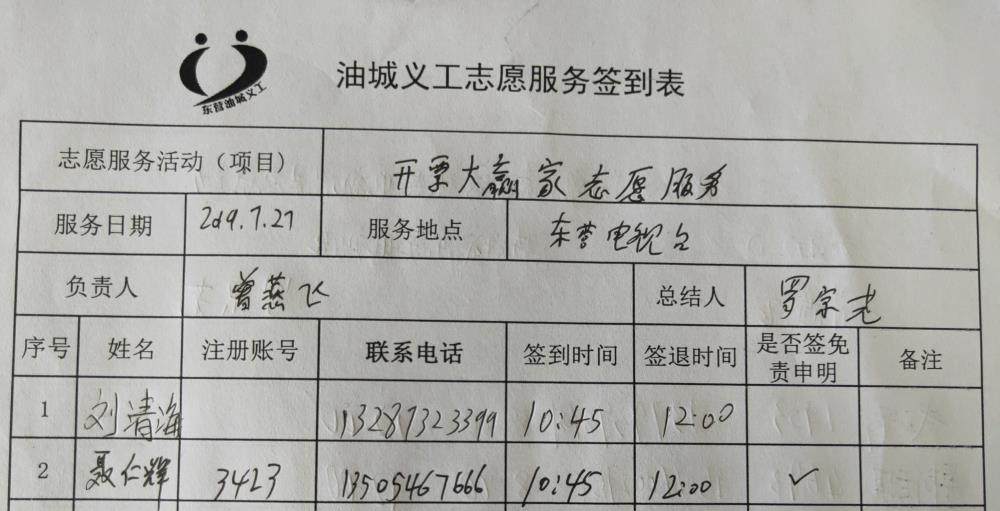 东营油城义工
油城义工志愿服务签到表
志愿服务活动（项目） 开票大赢家志愿服务
服务日期 2019.7.27 服务地点 东营电视台
负责人 曾燕飞 总结人 罗宗光
序号 姓名 注册账号 联系电话 签到时间 签退时间 是否签免责申明 备注
1 刘清海 13287323399 10:45 12:00
2 聂仁辉 3423 13505467666 10:45 12:00 ✓